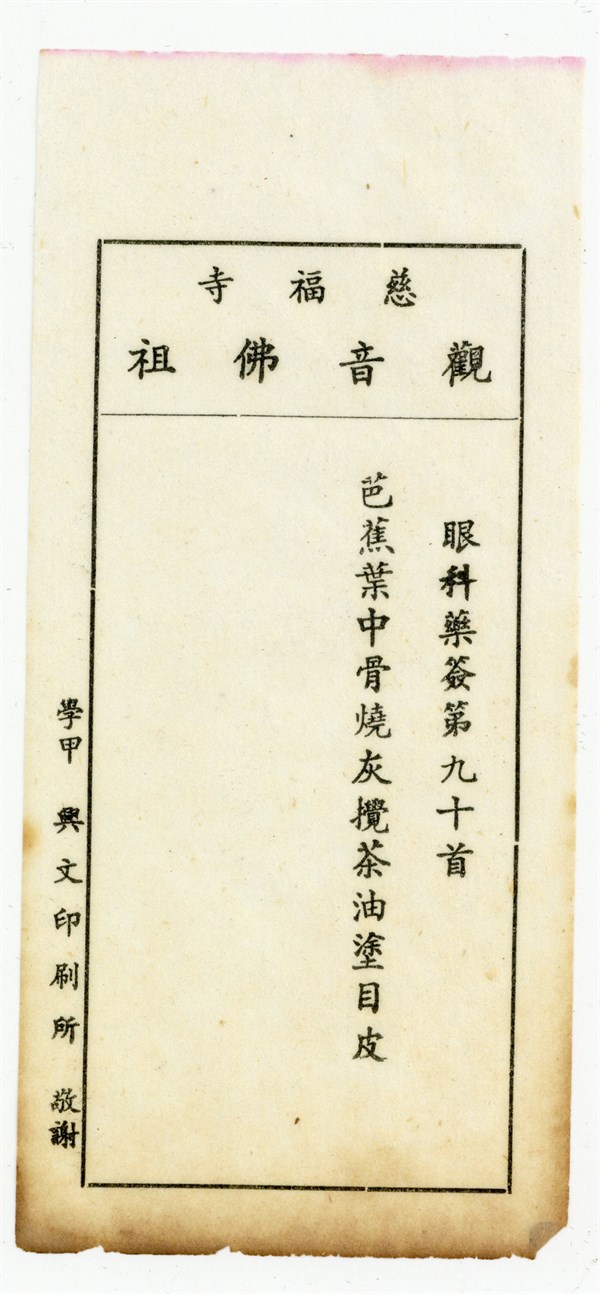 慈福寺
觀音佛祖
眼科藥簽第九十首
芭蕉葉中骨燒灰攪茶油塗目皮
學甲 興文印刷所 敬謝